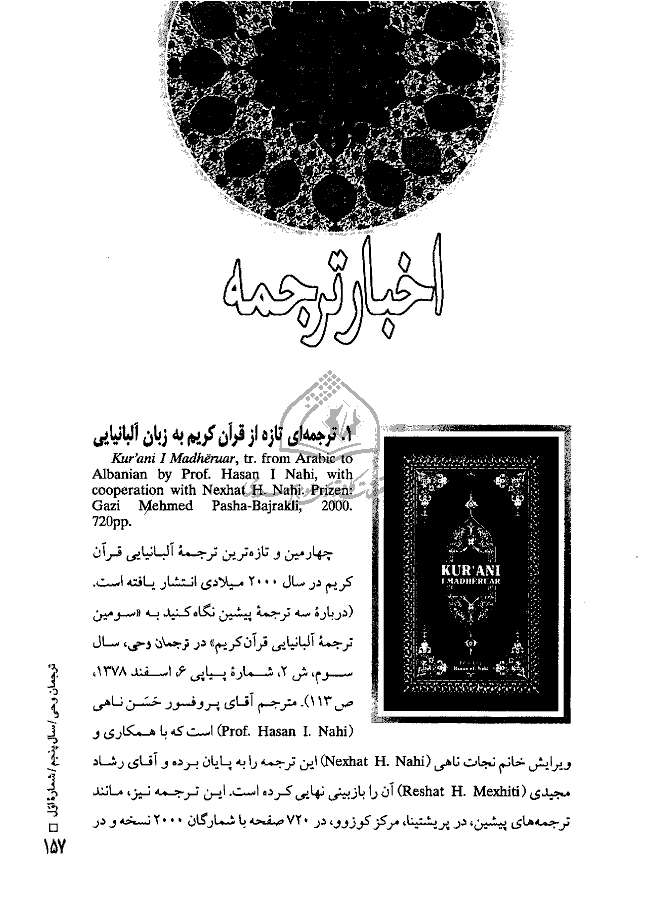 اخبار ترجمه
۱. ترجمه‌ای تازه از قرآن کریم به زبان آلبانیایی
Kur'ani I Madhëruar, tr. from Arabic to
Albanian by Prof. Hasan I Nahi, with
cooperation with Nexhat H. Nahi. Prizen:
Gazi Mehmed Pasha-Bajrakli, 2000.
720pp.
KUR'ANI
I MADHERUAR
Hasan ef. Nahi
چهارمین و تازه‌ترین ترجمهٔ آلبانیایی قرآن
کریم در سال ۲۰۰۰ میلادی انتشار یافته است.
(دربارهٔ سه ترجمهٔ پیشین نگاه کنید به «سومین
ترجمهٔ آلبانیایی قرآن کریم» در ترجمان وحی، سال
سوم، ش ۲، شمارهٔ پیاپی ۶، اسفند ۱۳۷۸،
ص ۱۱۳). مترجم آقای پروفسور حَسَن ناهی
(Prof. Hasan I. Nahi) است که با همکاری و
ویرایش خانم نجات ناهی (Nexhat H. Nahi) این ترجمه را به پایان برده و آقای رشاد
مجیدی (Reshat H. Mexhiti) آن را بازبینی نهایی کرده است. این ترجمه نیز، مانند
ترجمه‌های پیشین، در پریشتینا، مرکز کوزوو، در ۷۲۰ صفحه با شمارگان ۲۰۰۰ نسخه و در
ترجمان وحی / سال پنجم / شمارهٔ اوّل
۱۵۷